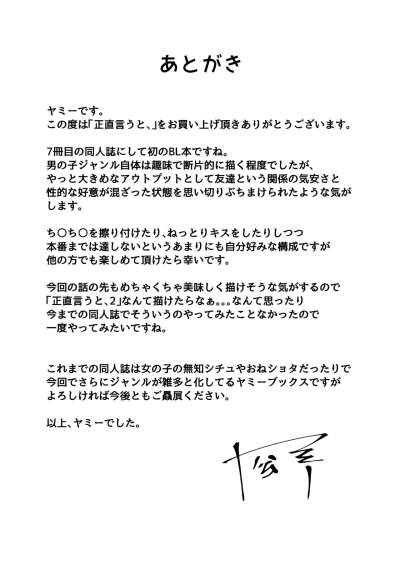 あとがき
ヤミーです。
この度は「正直言うと、」をお買い上げ頂きありがとうございます。
7冊目の同人誌にして初のBL本ですね。
男の子ジャンル自体は趣味で断片的に描く程度でしたが、
やっと大きめなアウトプットとして友達という関係の気安さと
性的な好意が混ざった状態を思い切りぶちまけられたような気が
します。
ち〇ち〇を擦り付けたり、ねっとりキスをしたりしつつ
本番までは達しないというあまりにも自分好みな構成ですが
他の方でも楽しめて頂けたら幸いです。
今回の話の先もめちゃくちゃ美味しく描けそうな気がするので
「正直言うと、2」なんて描けたらなぁ。。。なんて思ったり
今までの同人誌でそういうのやってみたことなかったので
一度やってみたいですね。
これまでの同人誌は女の子の無知シチュやおねショタだったりで
今回でさらにジャンルが雑多と化してるヤミーブックスですが
よろしければ今後ともご贔屓ください。
以上、ヤミーでした。